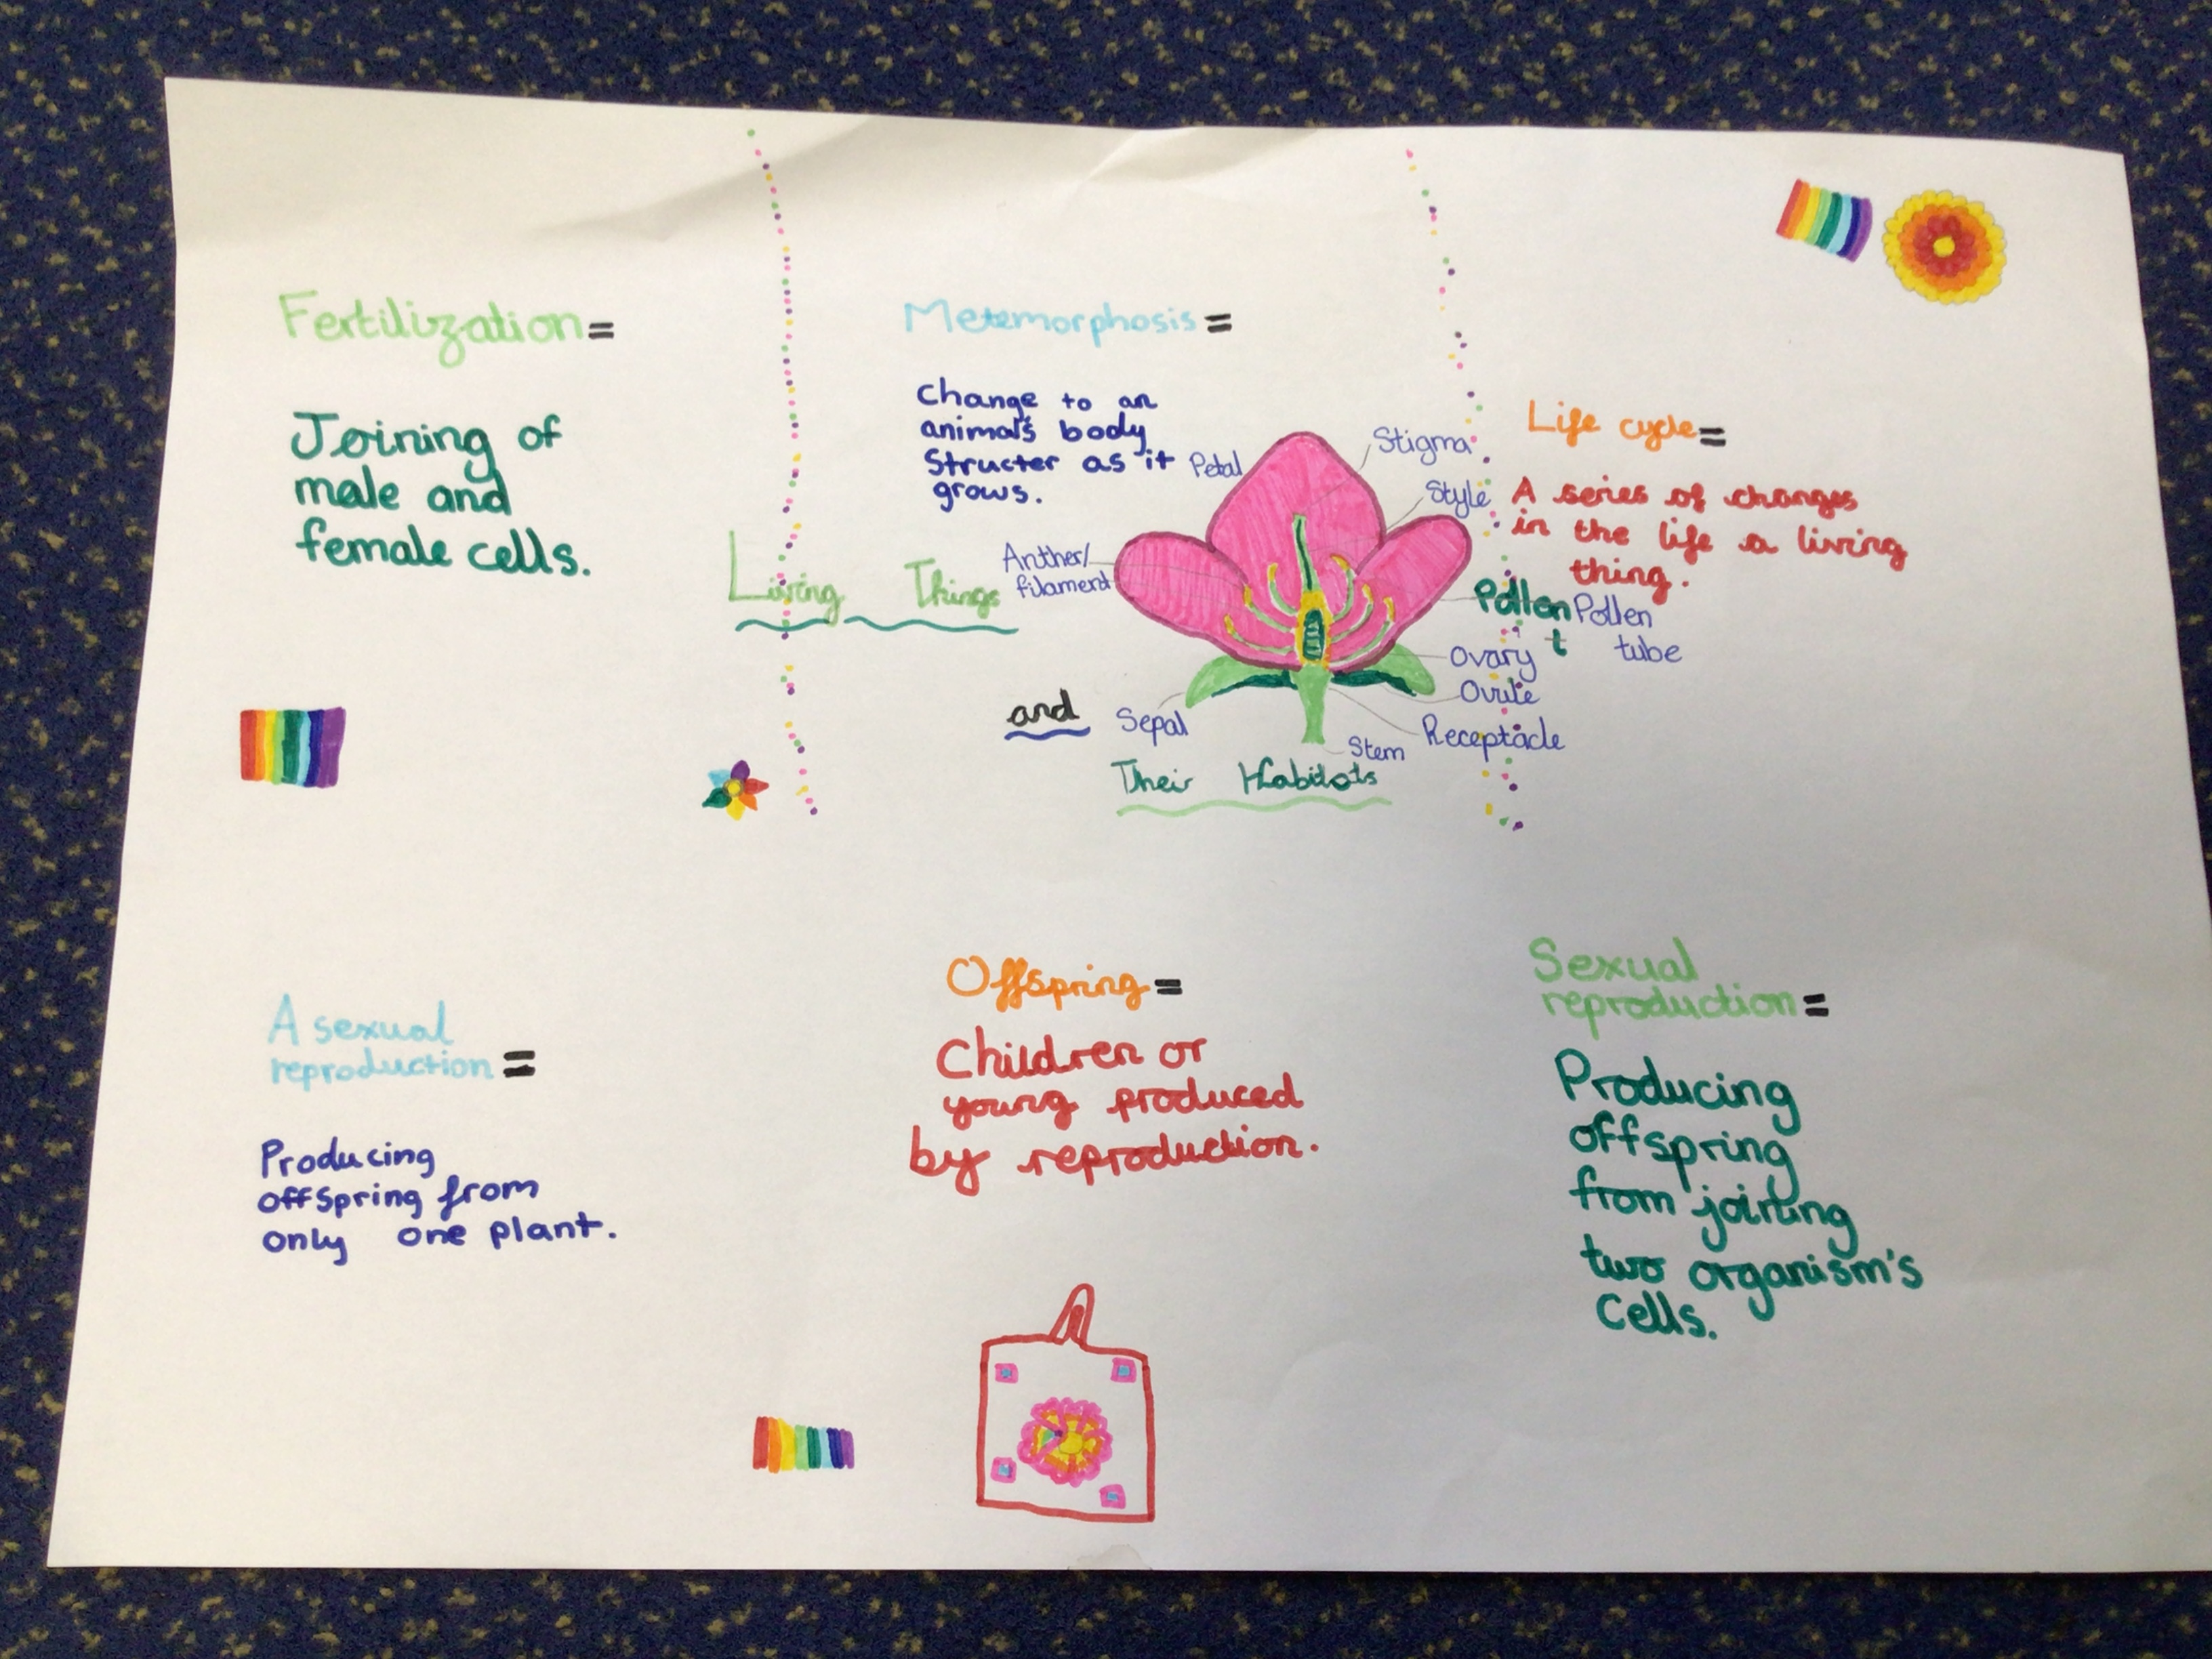 Fertilization=
Joining of
male and
female cells.
Metemorphosis=
Change to an
animal's body
Structer as it
grows.
Life cycle=
A series of changes
in the life a living
thing.
Living Things
and
Their Habitats
Petal
Stigma
Style
Anther/
filament
Pollen
t
Pollen
tube
Ovary
Ovule
Receptacle
Stem
Sepal
A sexual
reproduction=
Producing
offspring from
only one plant.
Offspring=
Children or
young produced
by reproduction.
Sexual
reproduction=
Producing
offspring
from joining
two organism's
Cells.